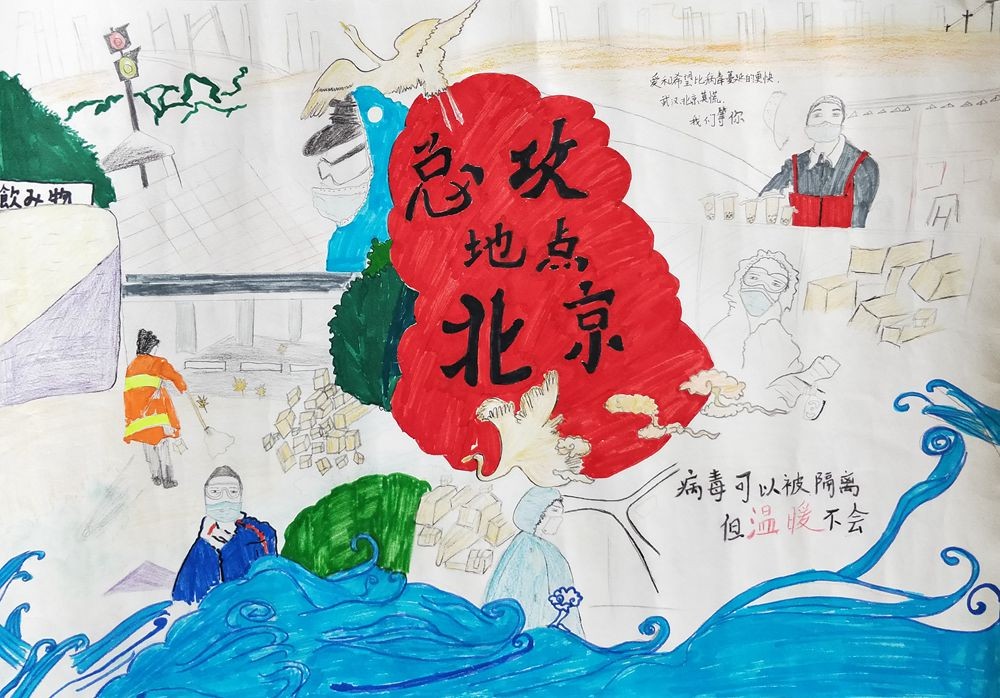 飲み物
总攻
地点
北京
爱和希望比病毒蔓延的更快.
武汉.北京莫慌.
我们等你
病毒可以被隔离
但温暖不会